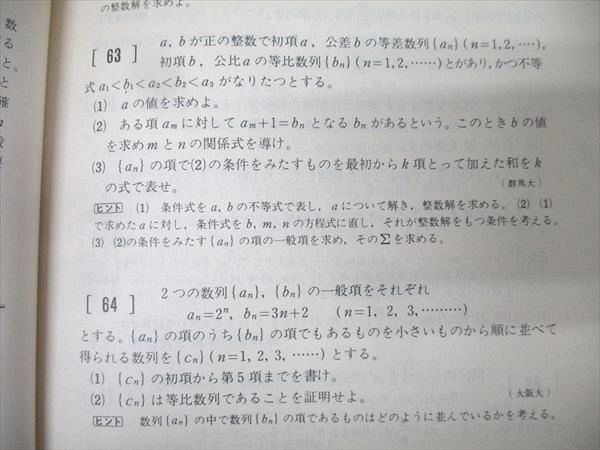 の整数解を求めよ。
数
る
と。
と
確
[ 63 ] a, bが正の整数で初項a, 公差bの等差数列{aₙ} (n=1,2,‥‥),
初項b, 公比aの等比数列{bₙ} (n=1,2,……)とがあり,かつ不等
式a₁<b₁<a₂<b₂<a₃がなりたつとする。
(1) aの値を求めよ。
(2) ある項aₘに対してaₘ+1=bₙとなるbₙがあるという。このときbの値
を求めmとnの関係式を導け。
(3) {aₙ}の項で(2)の条件をみたすものを最初からk項とって加えた和をk
の式で表せ。 (群馬大)
ヒント (1) 条件式をa, bの不等式で表し, aについて解き, 整数解を求める。 (2) (1)
で求めたaに対し, 条件式をb, m, nの方程式に直し, それが整数解をもつ条件を考える。
(3) (2)の条件をみたす{aₙ}の項の一般項を求め, そのΣを求める。
[ 64 ] 2つの数列{aₙ}, {bₙ}の一般項をそれぞれ
aₙ=2ⁿ, bₙ=3n+2 (n=1, 2, 3, ………)
とする。{aₙ}の項のうち{bₙ}の項でもあるものを小さいものから順に並べて
得られる数列を{cₙ}(n=1, 2, 3, ……)とする。
(1) {cₙ}の初項から第5項までを書け。
(2) {cₙ}は等比数列であることを証明せよ。 (大阪大)
ヒント 数列{aₙ}の中で数列{bₙ}の項であるものはどのように並んでいるかを考える。